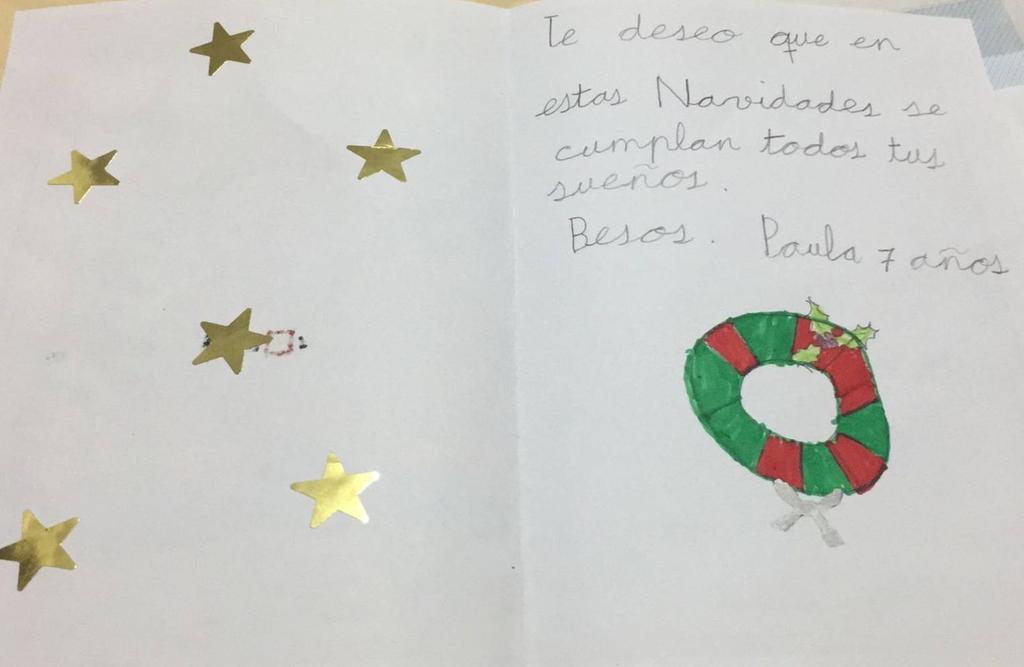 Te deseo que en
estas Navidades se
cumplan todos tus
sueños.
Besos. Paula 7 años